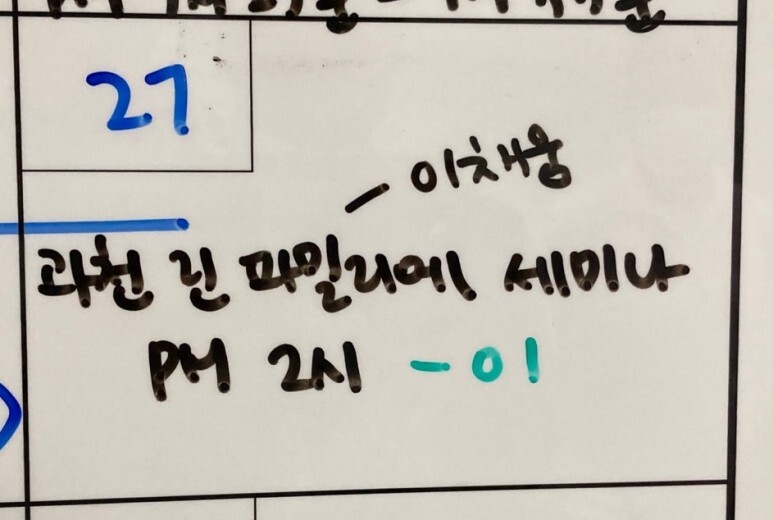 27
- 이채웅
과천 린 파밀리에 세미나
PM 2시 - 이